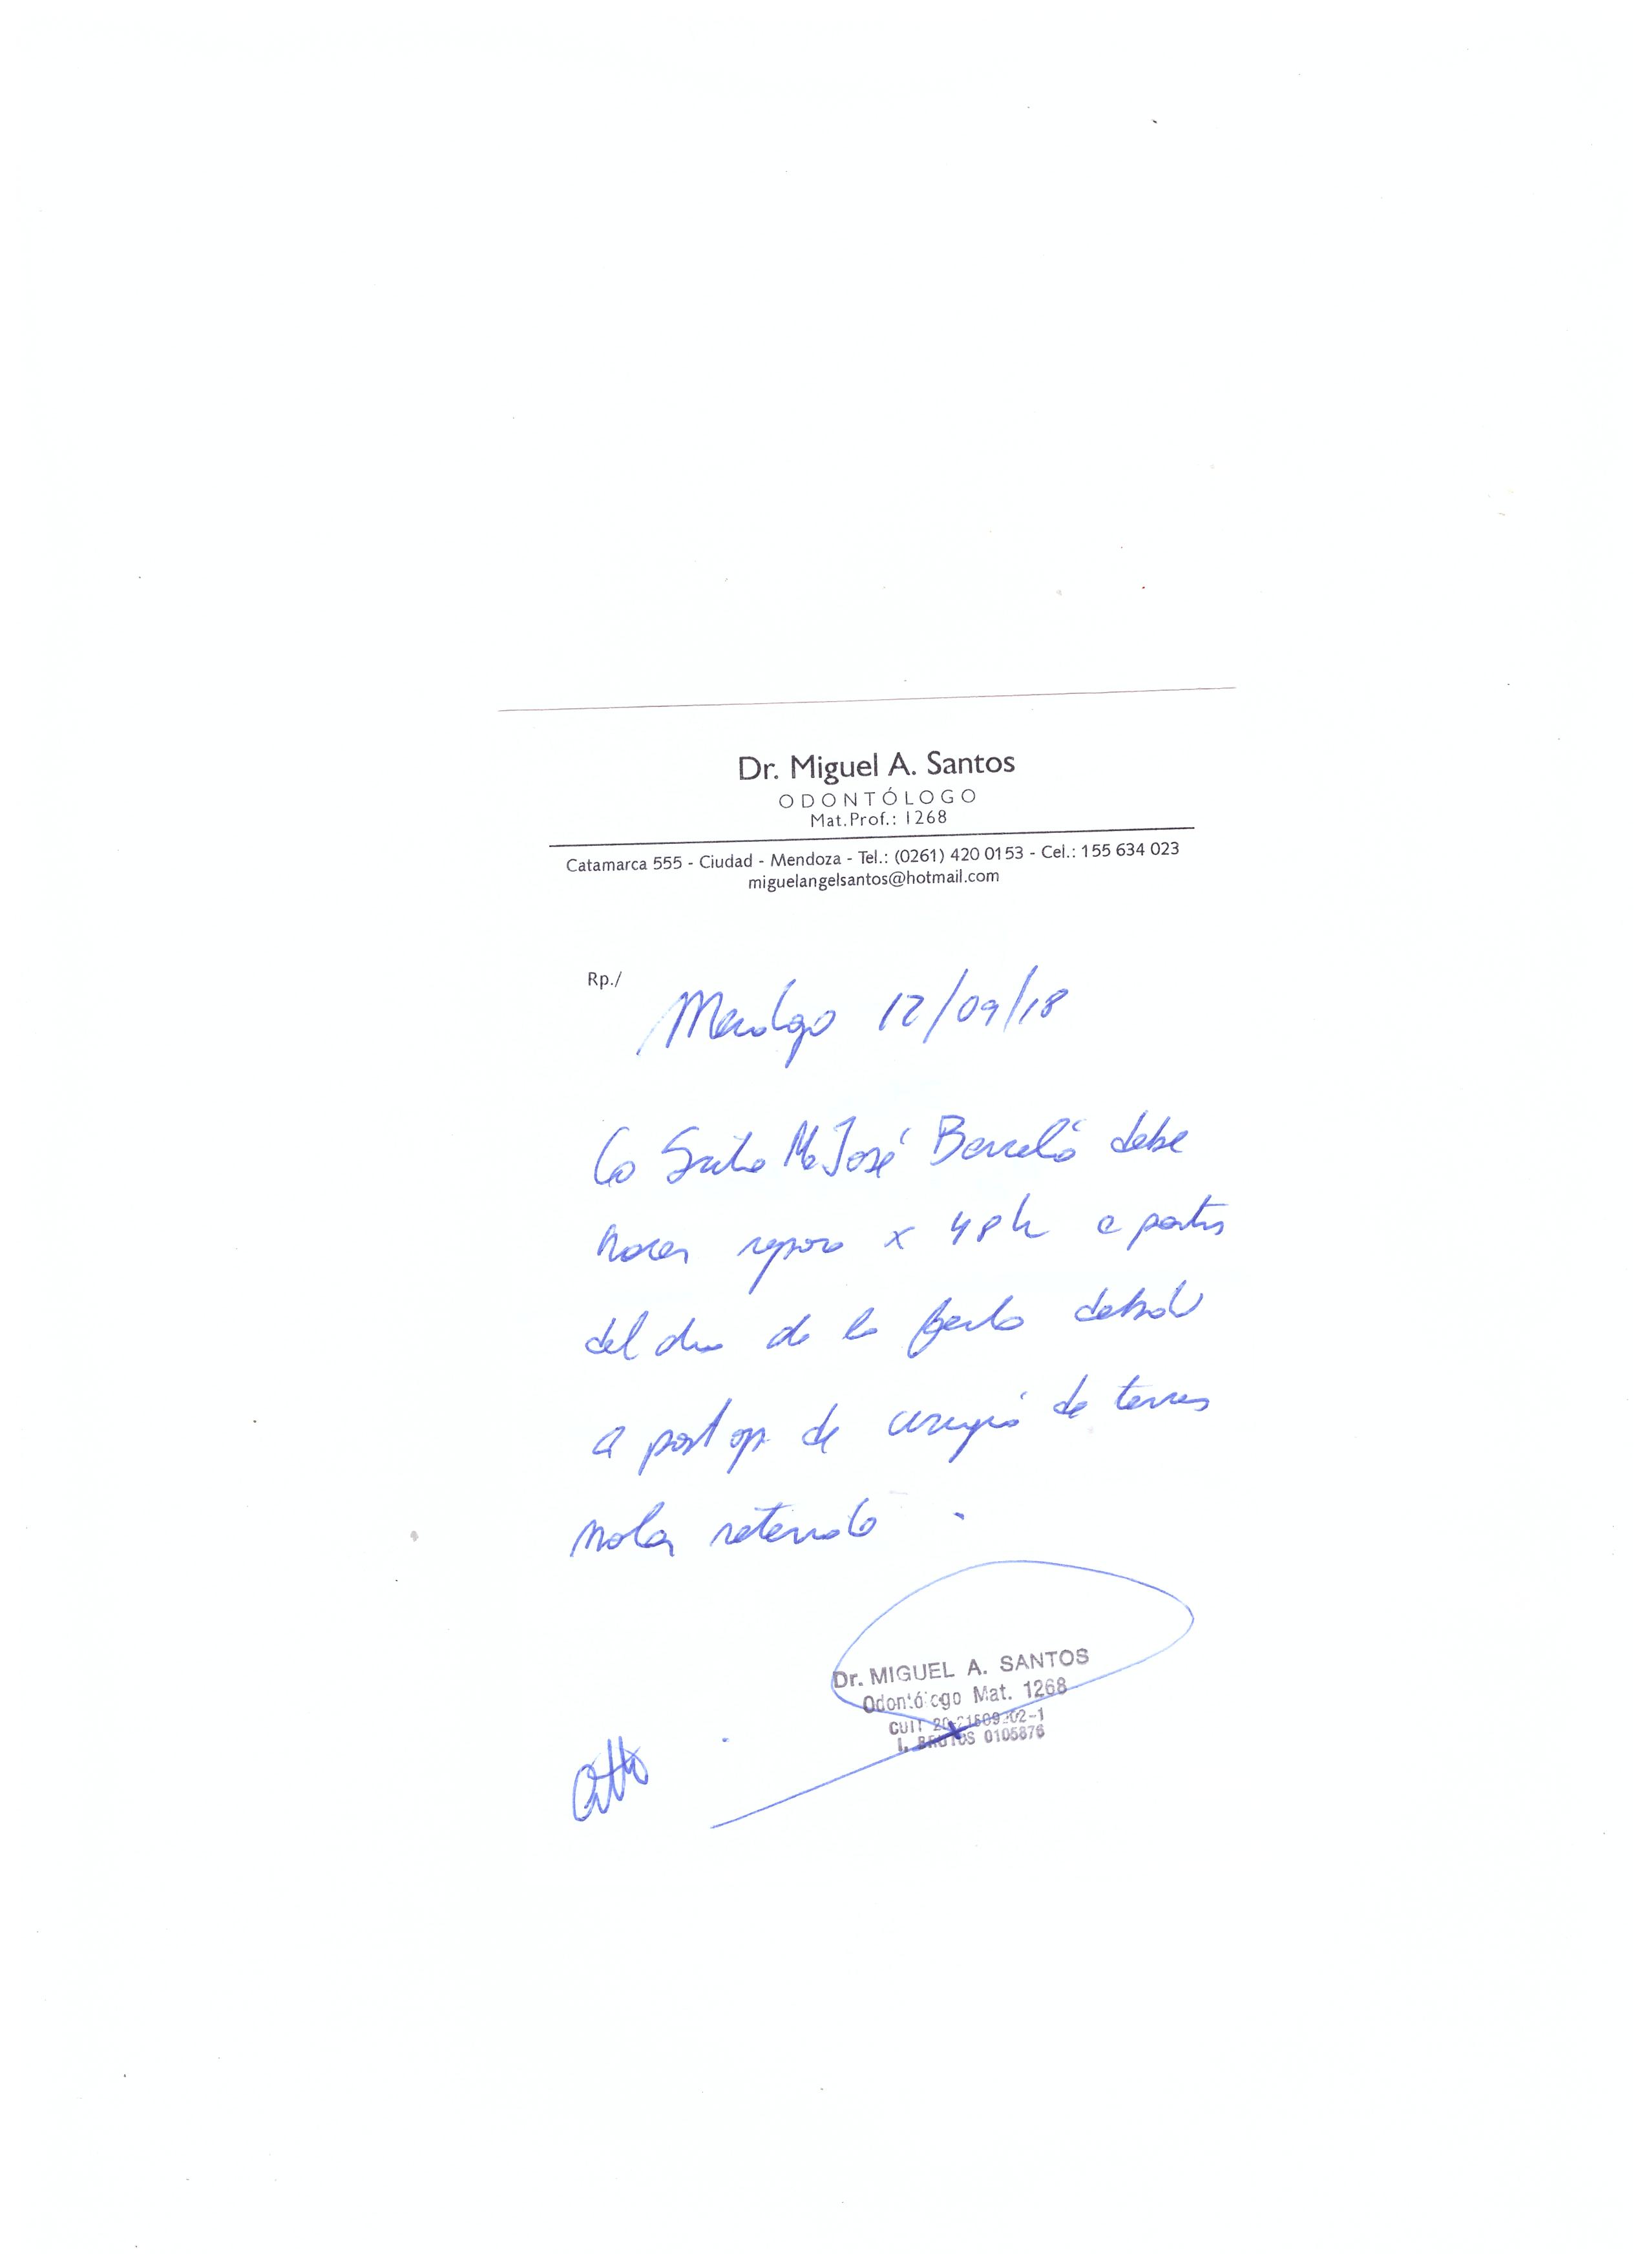 Dr. Miguel A. Santos
ODONTÓLOGO
Mat.Prof.: 1268
Catamarca 555 - Ciudad - Mendoza - Tel.: (0261) 420 0153 - Cel.: 155 634 023
miguelangelsantos@hotmail.com
Rp./
Mendoza 12/09/18
La Srita Ma José Barceló debe
hacer reposo x 48h a partir
del dia de la fecha debido
a post op. de cirugía de tercer
molar retenido.
Dr. MIGUEL A. SANTOS
Odontólogo Mat. 1268
CUIT
I. BRUTOS 0105876